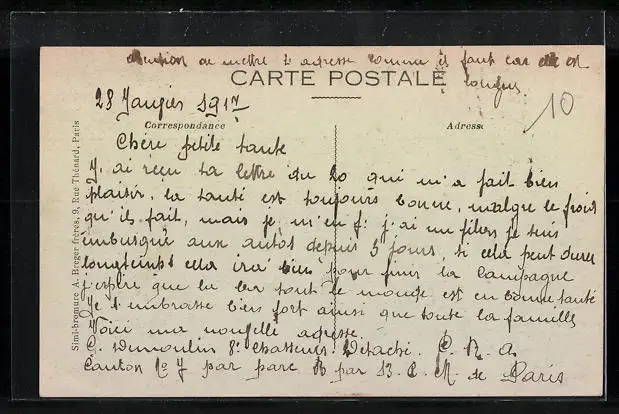 attention de mettre l adresse comme il faut car elle est
longue
CARTE POSTALE
10
28 Janvier 1917
Correspondance
Adresse
Chère petite tante
J. ai reçu ta lettre du 20 qui m'a fait bien
plaisir, la santé est toujours bonne, malgre le froid
qu'il fait, mais je m'en f: j'ai un filon je suis
embusqué aux autos depuis 5 jours, si cela peut durer
longtemps cela ira bien pour finir la campagne
j'espère que la bas tout le monde est en bonne santé
Je t'embrasse bien fort ainsi que toute la famille
Voici ma nouvelle adresse.
C. Demoulin 8e Chasseurs Détaché. C. R. A
Canton No 7 par parc B par B. C. M. de Paris
Simili-bromure A. Breger frères, 9, Rue Thénard, Paris